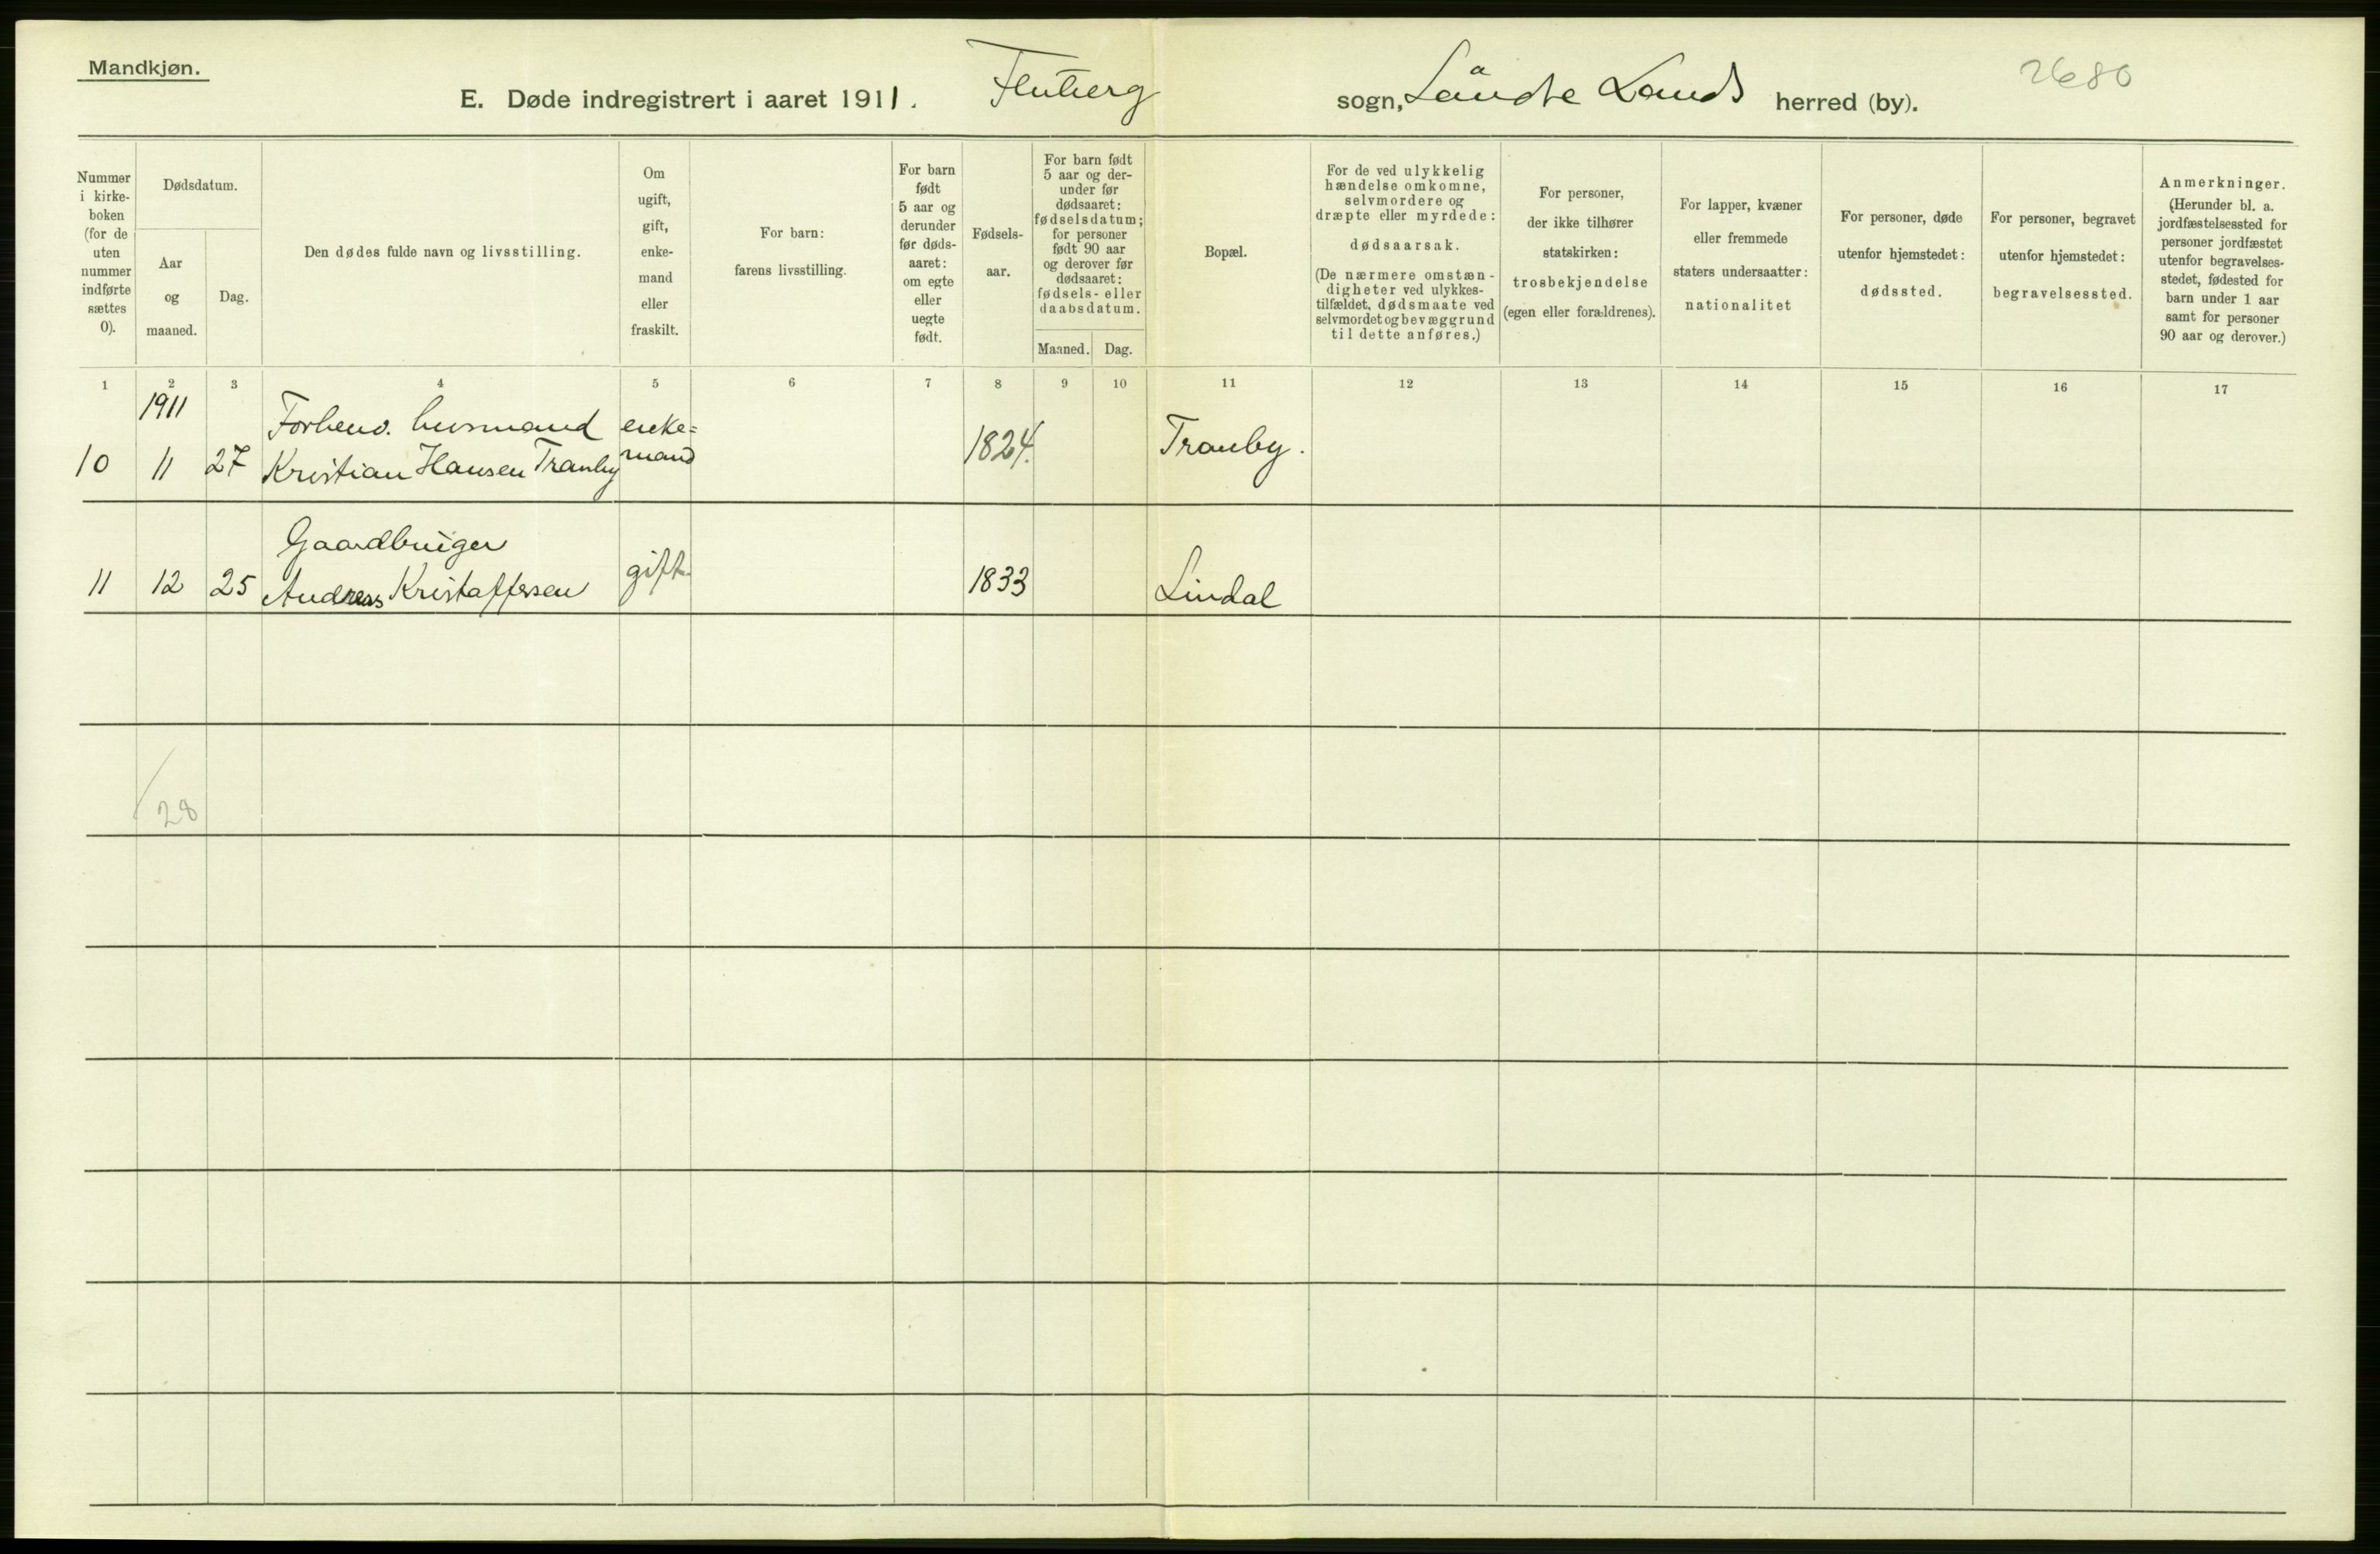 Mandkjøn.
E. Døde indregistrert i aaret 1911. Fluberg sogn, Søndre Lands herred (by).
2680
Nummer i kirkeboken (for de uten nummer indførte sættes 0).
Dødsdatum.
Aar og maaned.
Dag.
Den dødes fulde navn og livsstilling.
Om ugift, gift, enkemand eller fraskilt.
For barn: farens livsstilling.
For barn født 5 aar og derunder før dødsaaret: om egte eller uegte født.
Fødselsaar.
For barn født 5 aar og derunder før dødsaaret: fødselsdatum; for personer født 90 aar og derover før dødsaaret: fødsels- eller daabsdatum.
Maaned.
Dag.
Bopæl.
For de ved ulykkelig hændelse omkomne, selvmordere og dræpte eller myrdede: dødsaarsak.
(De nærmere omstændigheter ved ulykkestilfældet, dødsmaate ved selvmordet og bevæggrund til dette anføres.)
For personer, der ikke tilhører statskirken: trosbekjendelse (egen eller forældrenes).
For lapper, kvæner eller fremmede staters undersaatter: nationalitet
For personer, døde utenfor hjemstedet: dødssted.
For personer, begravet utenfor hjemstedet: begravelsessted.
Anmerkninger.
(Herunder bl. a. jordfæstelsessted for personer jordfæstet utenfor begravelsesstedet, fødested for barn under 1 aar samt for personer 90 aar og derover.)
1 2 3 4 5 6 7 8 9 10 11 12 13 14 15 16 17
1911
Forhenv. husmand enke=
10 11 27 Kristian Hansen Tranby mand 1824. Tranby.
Gaardbruger
11 12 25 Andreas Kristoffersen gift 1833 Lindal
/28